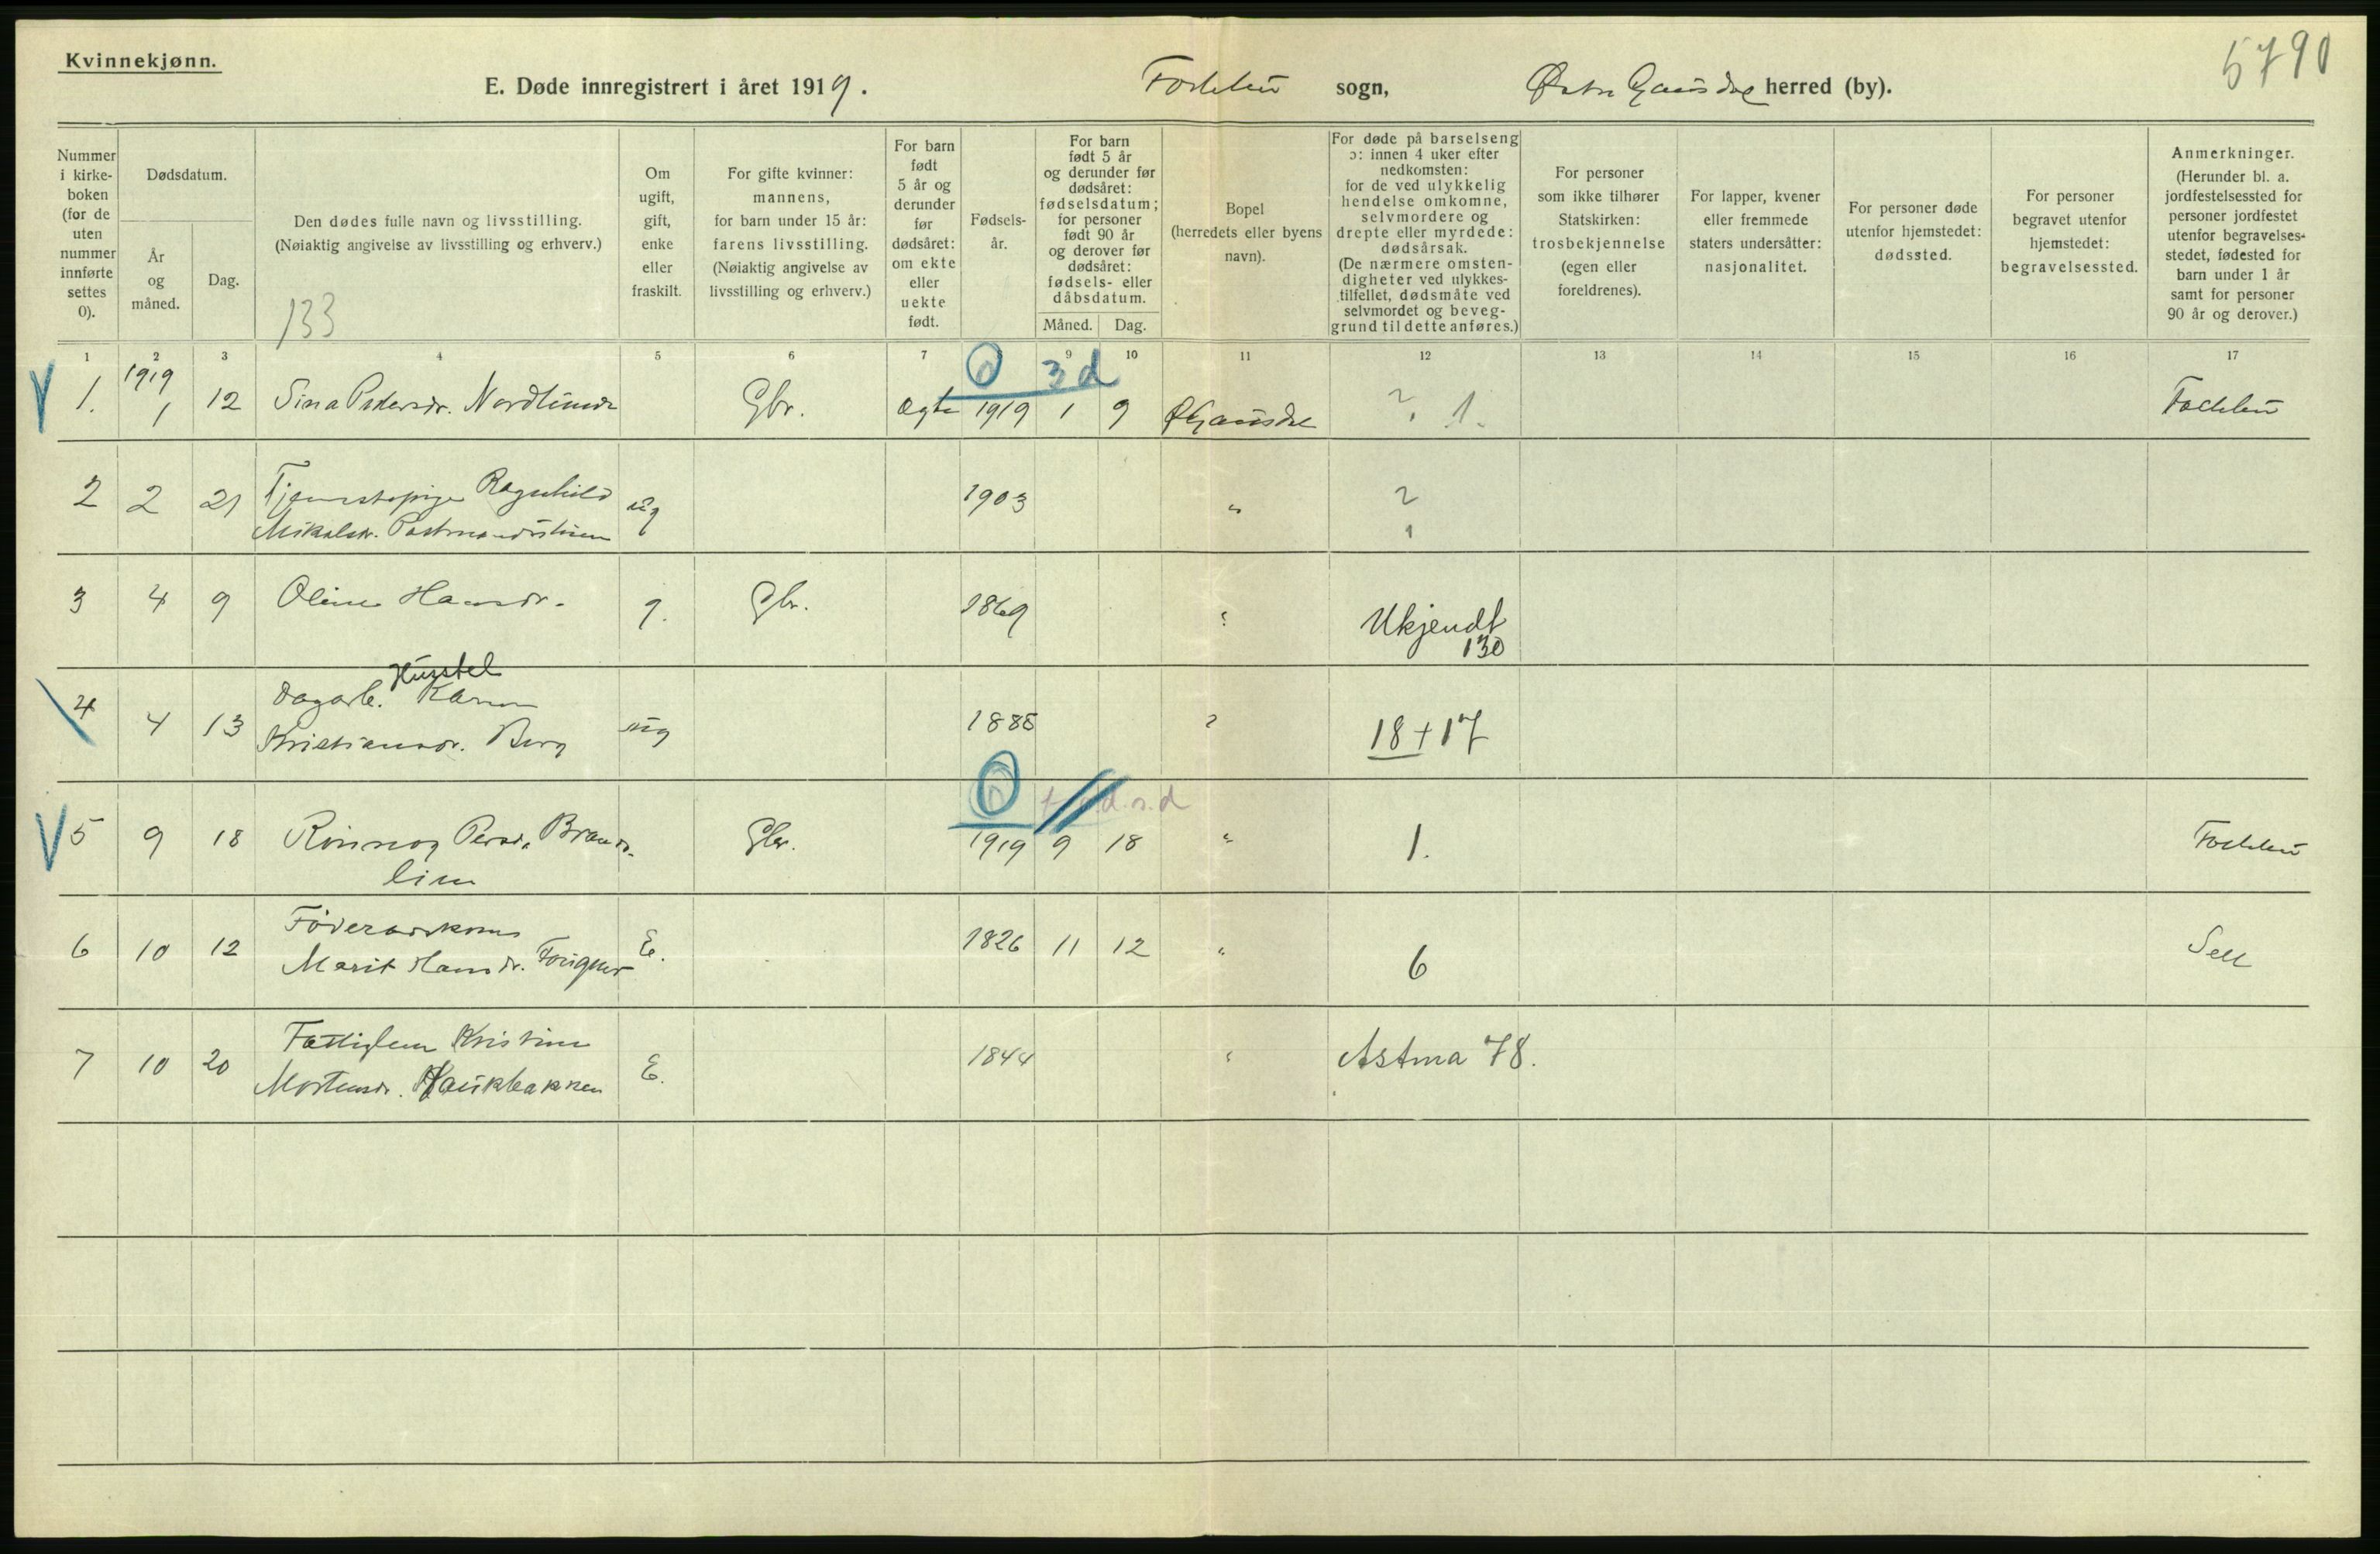 Kvinnekjønn.
5790
E. Døde innregistrert i året 1919. sogn, Østre Gausdal herred (by).
Nummer i kirkeboken (for de uten nummer innførte settes 0).
Dødsdatum.
År og måned.
Dag.
Den dødes fulle navn og livsstilling.
(Nøiaktig angivelse av livsstilling og erhverv.)
133
Om ugift, gift, enke eller fraskilt.
For gifte kvinner: mannens, for barn under 15 år: farens livsstilling. (Nøiaktig angivelse av livsstilling og erhverv.)
For barn født 5 år og derunder før dødsåret: om ekte eller uekte født.
Fødselsår.
For barn født 5 år og derunder før dødsåret: fødselsdatum; for personer født 90 år og derover før dødsåret: fødsels- eller dåbsdatum.
Måned. Dag.
Bopel (herredets eller byens navn).
For døde på barselseng ɔ: innen 4 uker efter nedkomsten: for de ved ulykkelig hendelse omkomne, selvmordere og drepte eller myrdede: dødsårsak. (De nærmere omstendigheter ved ulykkestilfellet, dødsmåte ved selvmordet og beveggrund til dette anføres.)
For personer som ikke tilhører Statskirken: trosbekjennelse (egen eller foreldrenes).
For lapper, kvener eller fremmede staters undersåtter: nasjonalitet.
For personer døde utenfor hjemstedet: dødssted.
For personer begravet utenfor hjemstedet: begravelsessted.
Anmerkninger. (Herunder bl. a. jordfestelsessted for personer jordfestet utenfor begravelsesstedet, fødested for barn under 1 år samt for personer 90 år og derover.)
1 2 3 4 5 6 7 9 10 11 12 13 14 15 16 17
0 3 d
1. 1919 1 12 Sina Pedersdr. Nordlinde Gbr. Ægte 1919 1 9 Ø Gausdal ? 1.
2 2 21 Tjenestepige Ragnhild ug 1903 " ?
Mikalsdr. 1
3 4 9 Oline Hansdr. g. Gbr. 1869 " Ukjendt
130
Husstel
4 4 13 Dagarb. Karen ug 1885 " 18+17
Kristiansdr. Berg
0 d
5 9 18 Rønnog Persdr. Gbr. 1919 9 18 " 1.
lien
6 10 12 Föderaadskone E. 1826 11 12 " 6 Sell
Marit Hansdr.
7 10 20 Fattiglem Kristine E. 1844 " Astma 78.
Mortensdr. Haukbakken